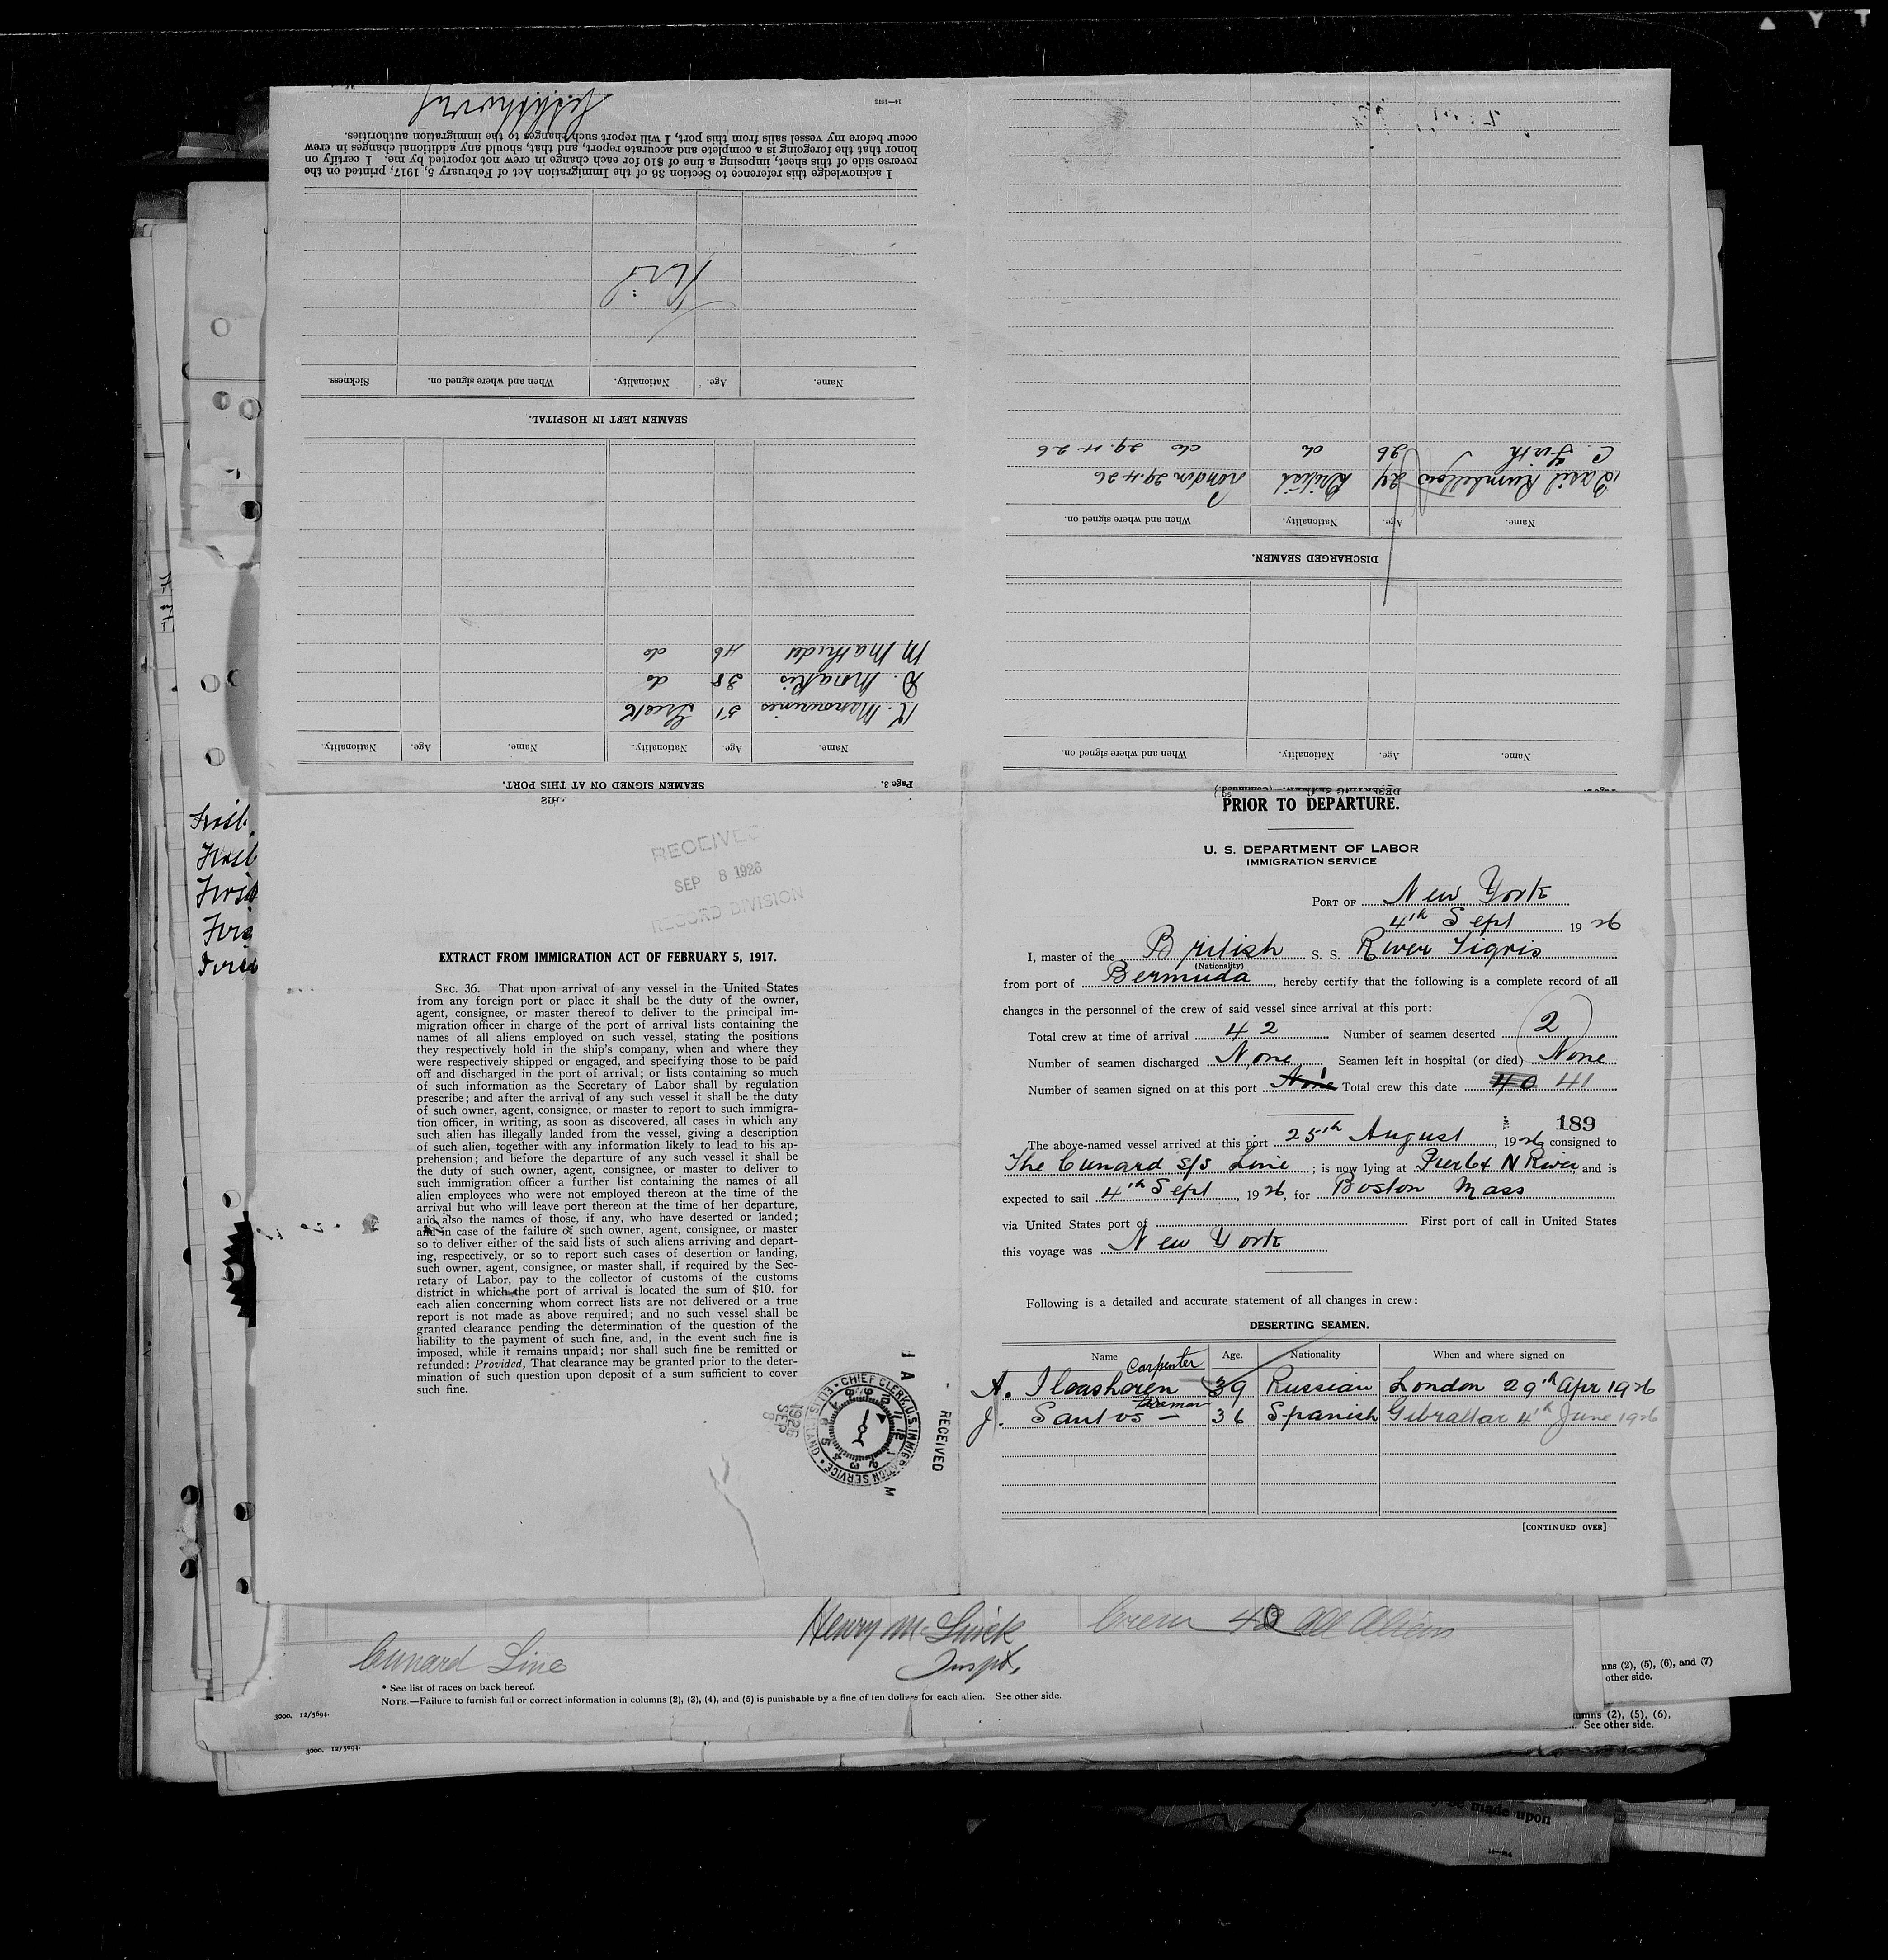 PRIOR TO DEPARTURE.
U. S. DEPARTMENT OF LABOR
IMMIGRATION SERVICE
PORT OF New York
4th Sept 1926
I, master of the British S. S. River Tigris
(Nationality)
from port of Bermuda, hereby certify that the following is a complete record of all
changes in the personnel of the crew of said vessel since arrival at this port:
Total crew at time of arrival 42 Number of seamen deserted 2
Number of seamen discharged None Seamen left in hospital (or died) None
Number of seamen signed on at this port None 1 Total crew this date 40 41
189
The above-named vessel arrived at this port 25th August, 1926, consigned to
The Cunard S/S Line; is now lying at Pier 64 N River, and is
expected to sail 4th Sept, 1926, for Boston Mass
via United States port of First port of call in United States
this voyage was New York
Following is a detailed and accurate statement of all changes in crew:
DESERTING SEAMEN.
Name Age. Nationality When and where signed on
Carpenter
A. 39 Russian London 29th Apr 1926
J. Santos — 36 Spanish Gibraltar 4th June 1926
[CONTINUED OVER]
RECEIVED
SEP 8 1926
RECORD DIVISION
EXTRACT FROM IMMIGRATION ACT OF FEBRUARY 5, 1917.
SEC. 36. That upon arrival of any vessel in the United States
from any foreign port or place it shall be the duty of the owner,
agent, consignee, or master thereof to deliver to the principal im-
migration officer in charge of the port of arrival lists containing the
names of all aliens employed on such vessel, stating the positions
they respectively hold in the ship's company, when and where they
were respectively shipped or engaged, and specifying those to be paid
off and discharged in the port of arrival; or lists containing so much
of such information as the Secretary of Labor shall by regulation
prescribe; and after the arrival of any such vessel it shall be the duty
of such owner, agent, consignee, or master to report to such immigra-
tion officer, in writing, as soon as discovered, all cases in which any
such alien has illegally landed from the vessel, giving a description
of such alien, together with any information likely to lead to his ap-
prehension; and before the departure of any such vessel it shall be
the duty of such owner, agent, consignee, or master to deliver to
such immigration officer a further list containing the names of all
alien employees who were not employed thereon at the time of the
arrival but who will leave port thereon at the time of her departure,
and also the names of those, if any, who have deserted or landed;
and in case of the failure of such owner, agent, consignee, or master
so to deliver either of the said lists of such aliens arriving and depart-
ing, respectively, or so to report such cases of desertion or landing,
such owner, agent, consignee, or master shall, if required by the Sec-
retary of Labor, pay to the collector of customs of the customs
district in which the port of arrival is located the sum of $10. for
each alien concerning whom correct lists are not delivered or a true
report is not made as above required; and no such vessel shall be
granted clearance pending the determination of the question of the
liability to the payment of such fine, and, in the event such fine is
imposed, while it remains unpaid; nor shall such fine be remitted or
refunded: Provided, That clearance may be granted prior to the deter-
mination of such question upon deposit of a sum sufficient to cover
such fine.
CHIEF CLERK, U.S. IMMIGRATION SERVICE • ELLIS ISLAND
RECEIVED
1926 SEP 8
A M
Name. Age. Nationality. When and where signed on.
DISCHARGED SEAMEN.
Name. Age. Nationality. When and where signed on.
Basil 24 British London 29.4.26
C. Firth 26 do do 29.4.26
Page 3.
SEAMEN SIGNED ON AT THIS PORT.
Name. Age. Nationality. Name. Age. Nationality.
K. 51 Greek
D. 38 do
M 46 do
SEAMEN LEFT IN HOSPITAL.
Name. Age. Nationality. When and where signed on. Sickness.
Nil
I acknowledge this reference to Section 36 of the Immigration Act of February 5, 1917, printed on the
reverse side of this sheet, imposing a fine of $10 for each change in crew not reported by me. I certify on
honor that the foregoing is a complete and accurate report, and that, should any additional changes in crew
occur before my vessel sails from this port, I will report such changes to the immigration authorities.
14—1013
Henry
Inspt.
Crew 40 all Aliens
Cunard Line
* See list of races on back hereof.
NOTE.—Failure to furnish full or correct information in columns (2), (3), (4), and (5) is punishable by a fine of ten dollars for each alien. See other side.
3000. 12/5694.
3000. 12/5694.
mns (2), (5), (6), and (7)
other side.
umns (2), (5), (6),
See other side.
be made upon